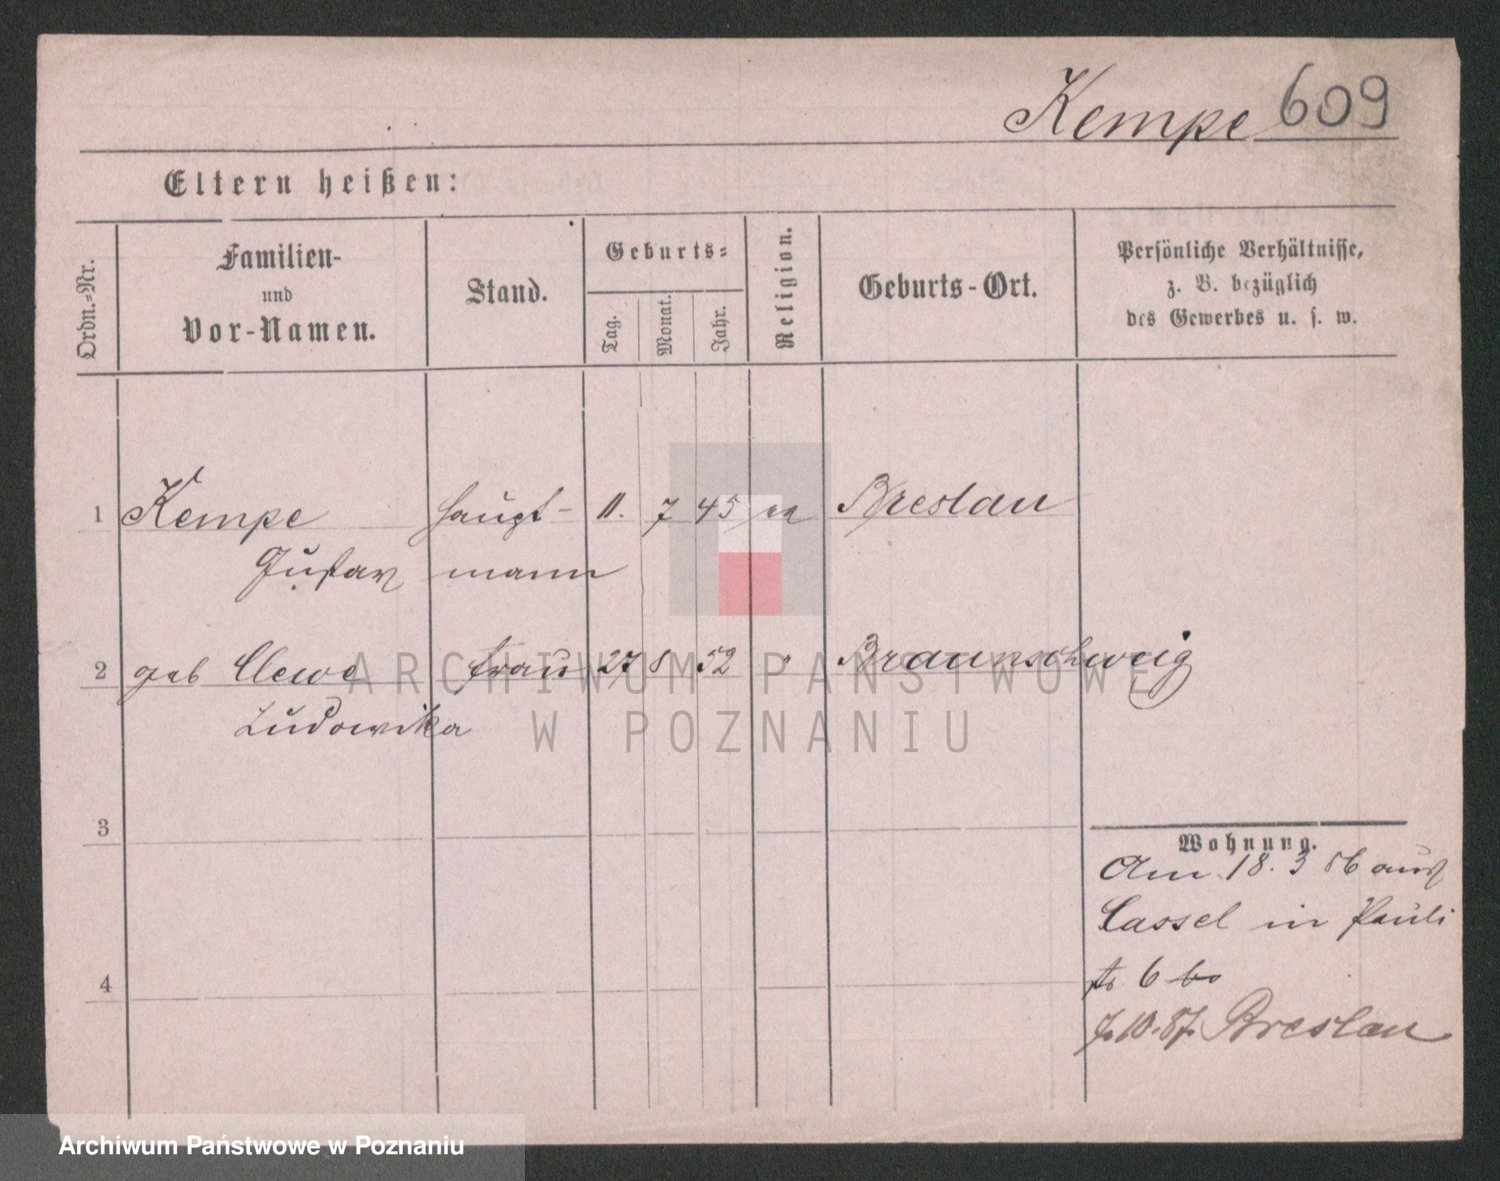 Kempe 609
Eltern heißen:
Ordn.-Nr.
Familien-
und
Vor-Namen.
Stand.
Geburts-
Tag.
Monat.
Jahr.
Religion.
Geburts-Ort.
Persönliche Verhältnisse,
z. B. bezüglich
des Gewerbes u. s. w.
1 Kempe Haupt- 11. 7 45 Breslau
Gustav mann
2 geb Clewe Frau 27 8 52 Braunschweig
Ludowika
3
4
Wohnung.
Am 18. 3 86 aus
Cassel in Pauli
6
10. 87. Breslau
ARCHIWUM PAŃSTWOWE
W POZNANIU
Archiwum Państwowe w Poznaniu